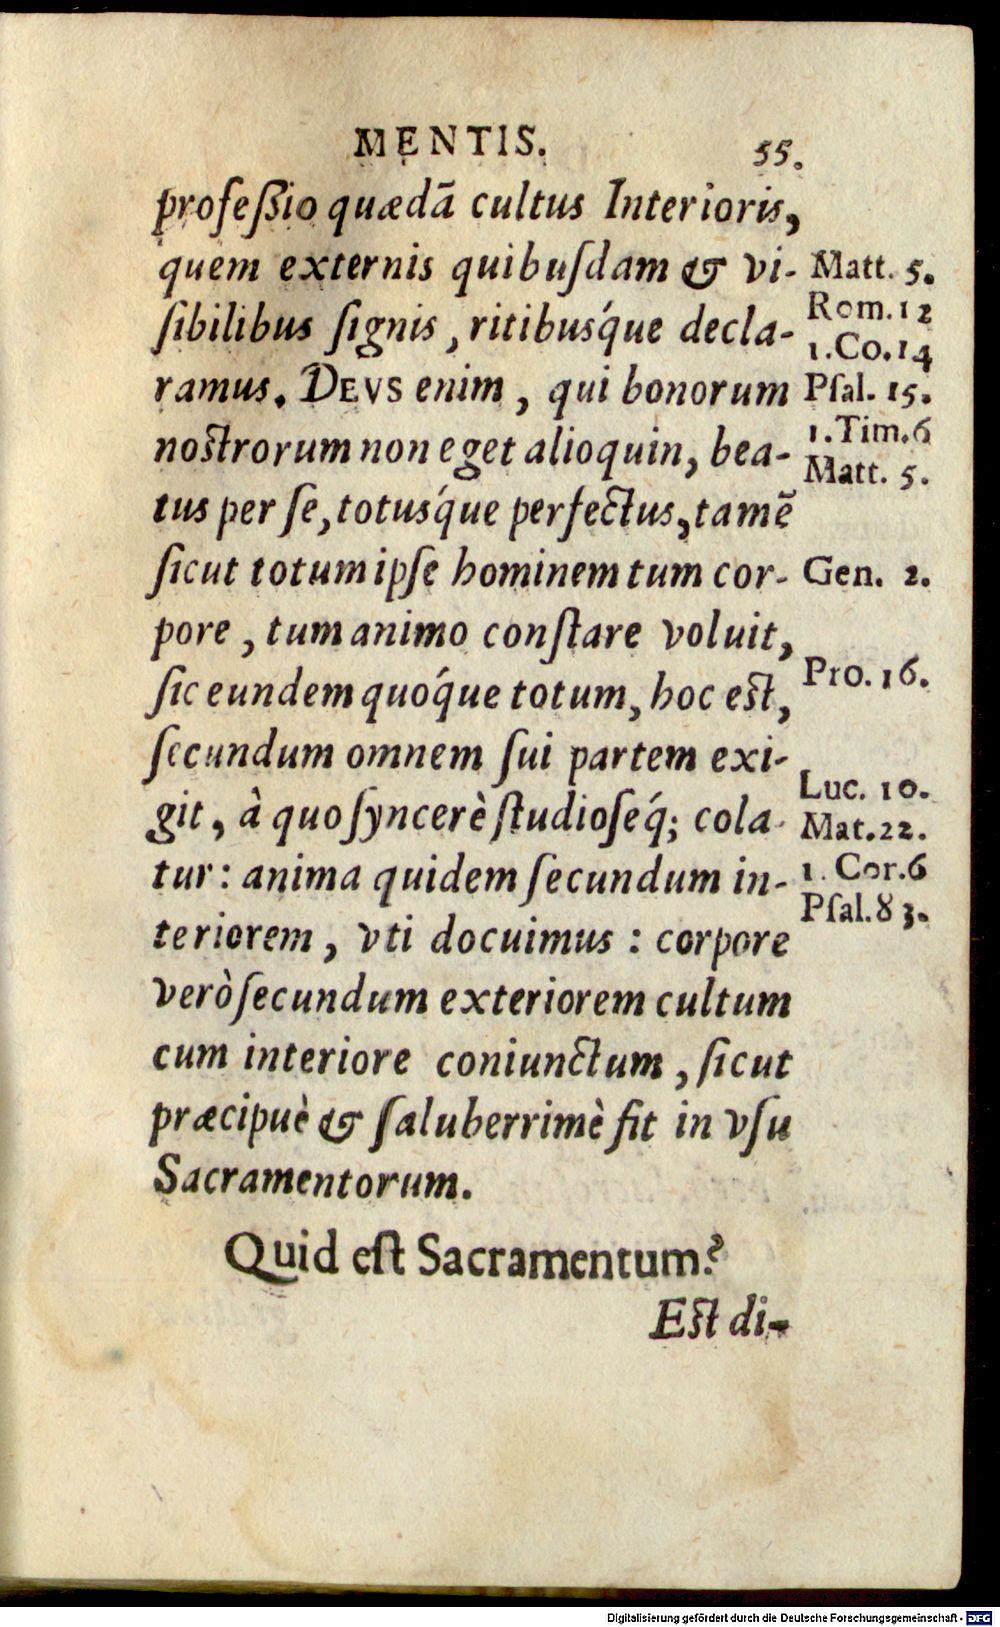 MENTIS. 55.
profeßio quædā cultus Interioris,
quem externis quibuſdam & vi- Matt. 5.
ſibilibus ſignis, ritibusq́ue decla- Rom. 12
1. Co. 14
ramus. DEVS enim, qui bonorum Pſal. 15.
noſtrorum non eget alioquin, bea- 1. Tim. 6
Matt. 5.
tus per ſe, totusq́ue perfectus, tamē
ſicut totum ipſe hominem tum cor- Gen. 2.
pore, tum animo conſtare voluit,
ſic eundem quoq́ue totum, hoc eſt, Pro. 16.
ſecundum omnem ſui partem exi-
git, à quo ſyncerè ſtudioſeq́; cola- Luc. 10.
Mat. 22.
tur: anima quidem ſecundum in- 1. Cor. 6
teriorem, vti docuimus: corpore Pſal. 83.
verò ſecundum exteriorem cultum
cum interiore coniunctum, ſicut
præcipuè & ſaluberrimè fit in vſu
Sacramentorum.
Quid eſt Sacramentum?
Eſt di-
Digitalisierung gefördert durch die Deutsche Forschungsgemeinschaft - DFG